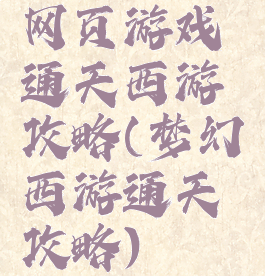 网页游戏
通天西游
攻略(梦幻
西游通天
攻略)